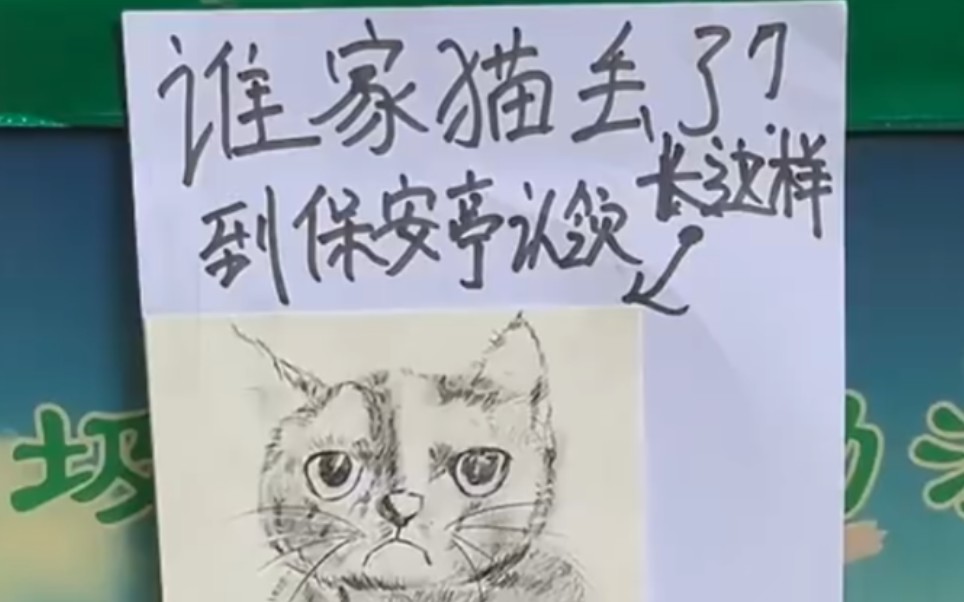 谁家猫丢了?
到保安亭认领
长这样
圾